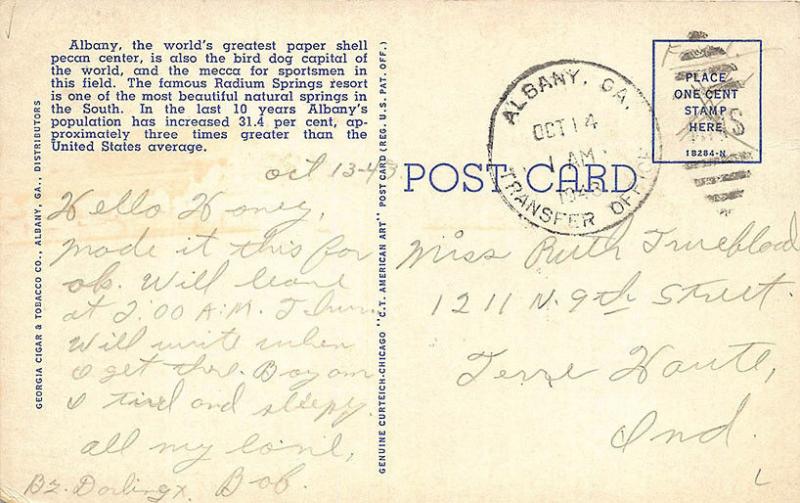 Albany, the world's greatest paper shell
pecan center, is also the bird dog capital of
the world, and the mecca for sportsmen in
this field. The famous Radium Springs resort
is one of the most beautiful natural springs in
the South. In the last 10 years Albany's
population has increased 31.4 per cent, ap-
proximately three times greater than the
United States average.
oct 13-43
Hello Honey,
made it this far
ok. Will leave
at 2:00 A.M. Thur.
Will write when
I get there. Boy am
I tired and sleepy.
all my love,
Bob.
Darling x
GEORGIA CIGAR & TOBACCO CO., ALBANY, GA., DISTRIBUTORS
GENUINE CURTEICH-CHICAGO "C.T. AMERICAN ART" POST CARD (REG. U.S. PAT. OFF.)
POST CARD
ALBANY, GA.
OCT 14
1 AM
TRANSFER OFFICE
PLACE
ONE CENT
STAMP
HERE
1B284-N
Miss Ruth Trueblood
1211 N. 9th Street.
Terre Haute,
Ind.